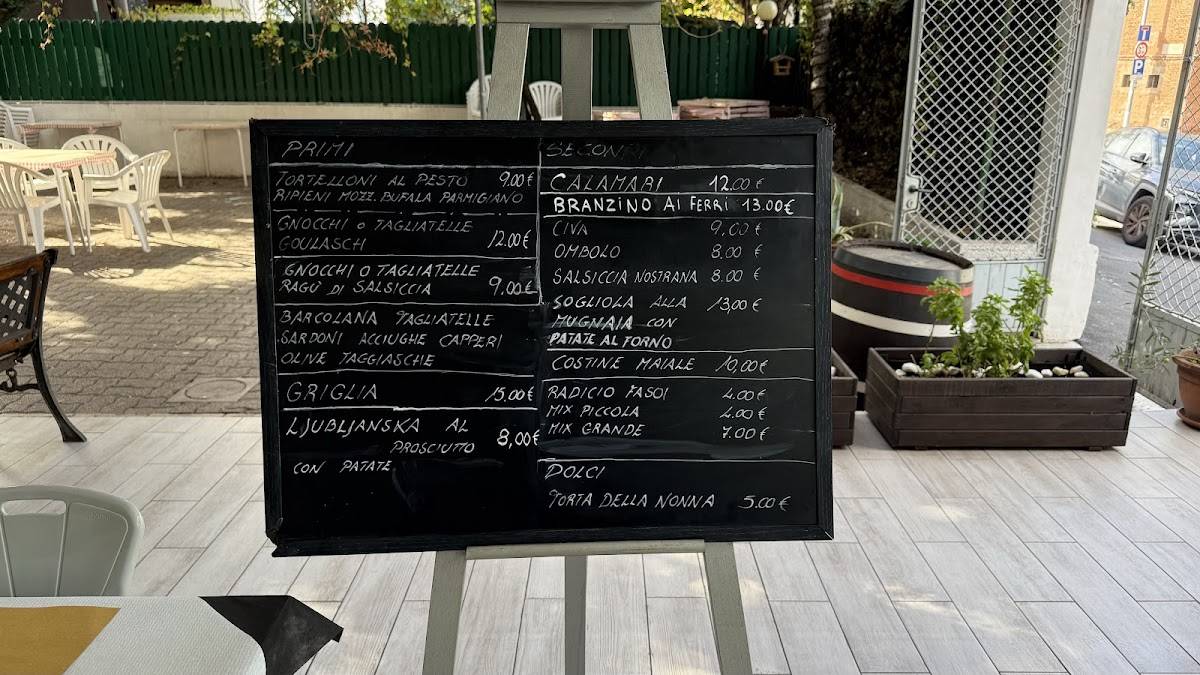 PRIMI
TORTELLONI AL PESTO 9.00 €
RIPIENI MOZZ. BUFALA PARMIGIANO
GNOCCHI O TAGLIATELLE
GOULASCH 12.00 €
GNOCCHI O TAGLIATELLE
RAGÙ DI SALSICCIA 9.00 €
BARCOLANA TAGLIATELLE
SARDONI ACCIUGHE CAPPERI
OLIVE TAGGIASCHE
GRIGLIA 15.00 €
LJUBLJANSKA AL
PROSCIUTTO 8,00 €
CON PATATE
SECONDI
CALAMARI 12.00 €
BRANZINO AI FERRI 13.00 €
CIVA 9,00 €
OMBOLO 8.00 €
SALSICCIA NOSTRANA 8.00 €
SOGLIOLA ALLA 13,00 €
MUGNAIA CON
PATATE AL FORNO
COSTINE MAIALE 10,00 €
RADICIO FASOI 4.00 €
MIX PICCOLA 4.00 €
MIX GRANDE 7.00 €
DOLCI
TORTA DELLA NONNA 5.00 €
T
P